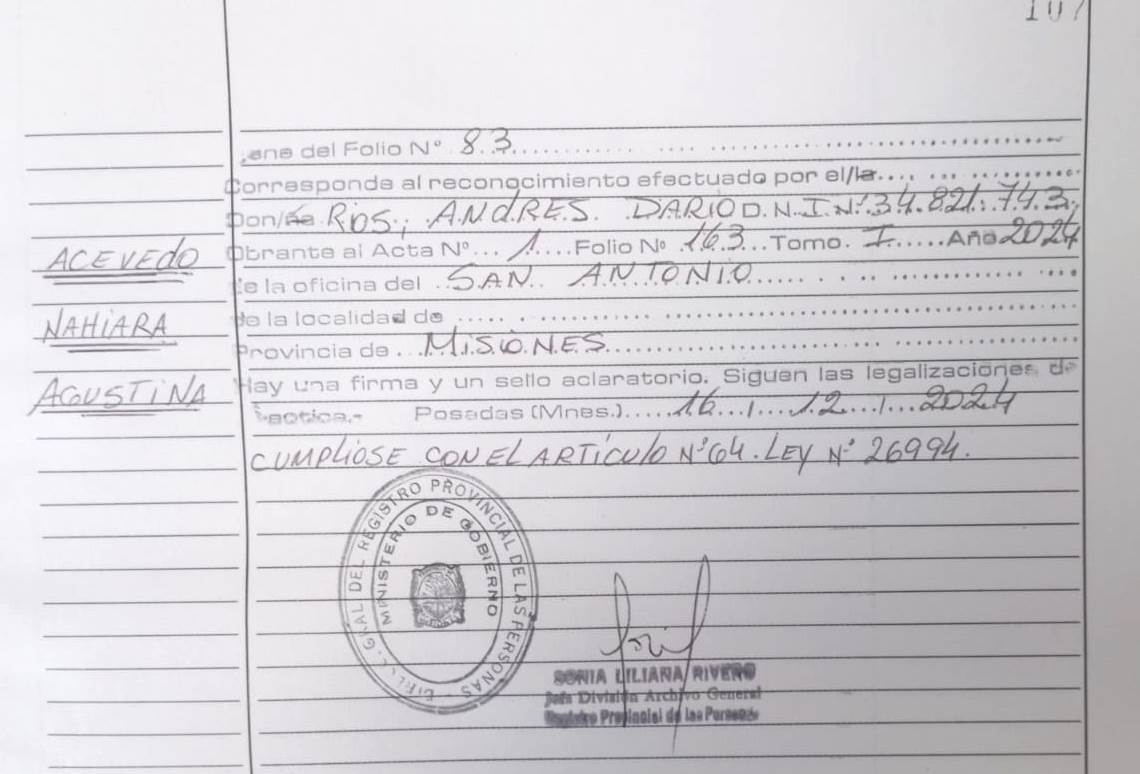 107
ACEVEDO
NAHIARA
AGUSTINA
iene del Folio Nº 83
Corresponde al reconocimiento efectuado por el/la
Don/ña ROS, ANDRES DARIO D.N.I Nº 34.821.743
Obrante al Acta Nº 1 Folio Nº 163 Tomo. I Año 2024
de la oficina del SAN ANTONIO
de la localidad de
Provincia de MISIONES
Hay una firma y un sello aclaratorio. Siguen las legalizaciones de
Posadas (Mnes.) 16 / 12 / 2024
CUMPLIOSE CON EL ARTÍCULO Nº 64. LEY Nº 26994.
GRAL DEL REGISTRO PROVINCIAL DE LAS PERSONAS
MINISTERIO DE GOBIERNO
SONIA LILIANA RIVERO
Jefa División Archivo General
Registro Provincial de las Personas